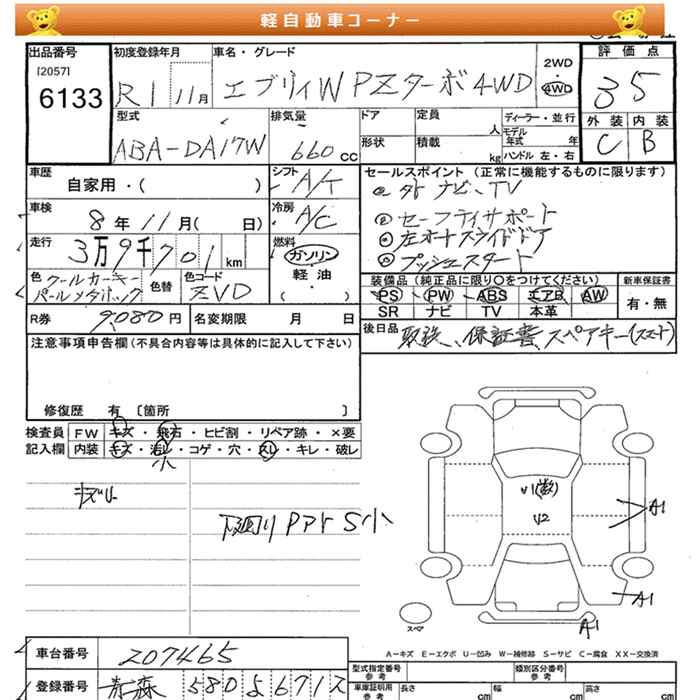 軽自動車コーナー
出品番号
[2057]
6133
初度登録年月
R1 11月
車名・グレード
エブリィW PZターボ4WD
2WD
4WD
評価点
3 5
外装 内装
C B
型式
ABA-DA17W
排気量
660 cc
ドア
形状
定員
人
積載
kg
ディーラー・並行
モデル年式 年
ハンドル 左・右
車歴
自家用・( )
シフト
A/T
車検
8年11月( 日)
冷房
A/C
走行
3万9千701 km
燃料
ガソリン
軽油
・( )
色 クールカーキー
パールメタ
色替
色コード
ZVD
R券
9,080円
名変期限 月 日
セールスポイント (正常に機能するものに限ります)
ナビ、TV
セーフティサポート
左オートスライドドア
プッシュスタート
装備品 (純正品に限り○をつけてください)
PS PW ABS エアB AW
SR ナビ TV 本革
新車保証書
有・無
後日品
取説、保証書、スペアキー(スマート)
注意事項申告欄(不具合内容等は具体的に記入して下さい)
修復歴 有 [箇所 ]
検査員
記入欄
FW キズ・飛石・ヒビ割・リペア跡・×要
内装 キズ・汚レ・コゲ・穴・スレ・キレ・破レ
小
下廻り Pアト S小
U1(数)
U2
A1
A1
A1
スペア
A−キズ E−エクボ U−凹み W−補修跡 S−サビ C−腐食 XX−交換済
車台番号
207465
登録番号
青森 580
型式指定番号
参考
類別区分番号
参考
車庫証明用
参考
長さ
cm
幅
cm
高さ
cm